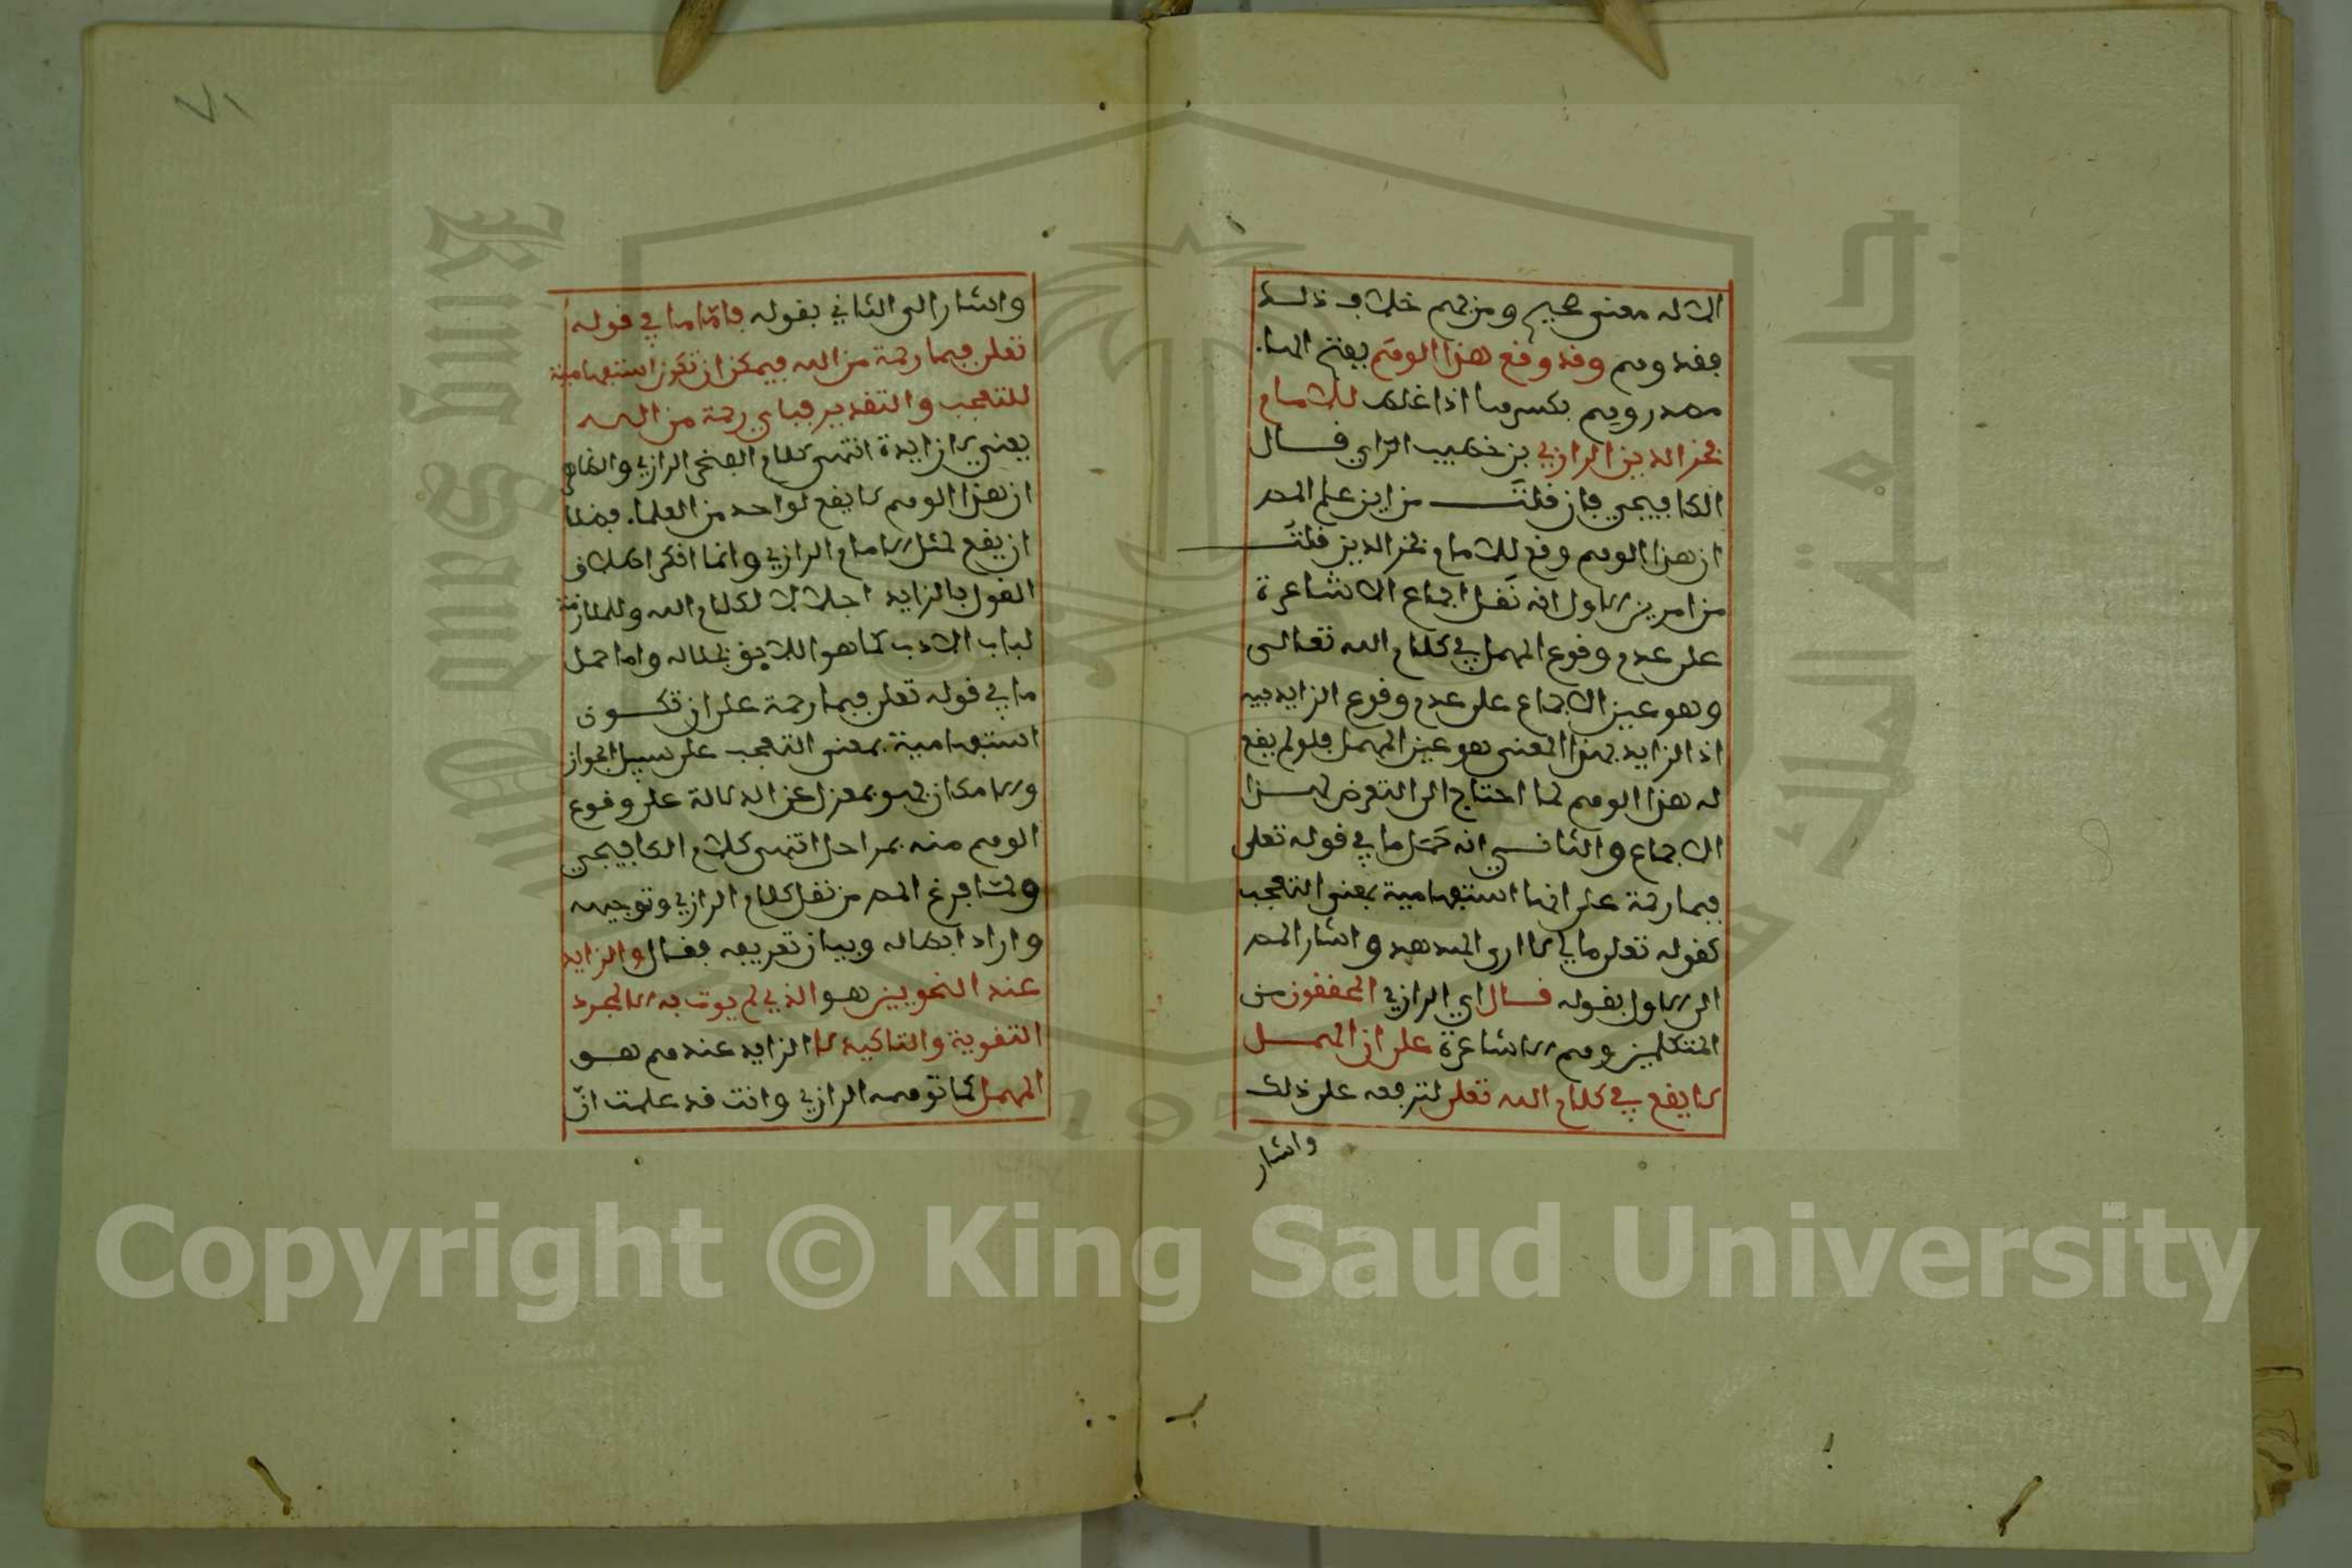 الا له معنى صحيح ومن فهم خلاف ذلك
فقد وهم وقد وقع هذا الوهم بفتح الهاء
مصدر وهم بكسرها اذا غلط للامام
فخر الدين الرازي بن خطيب الري فسال
الكافيجي فان قلت من اين علم المص
ان هذا الوهم وقع للامام فخر الدين قلت
من امرين الاول انه نقل اجماع الاشاعرة
على عدم وقوع المهمل في كلام الله تعالى
وهو عين الاجماع على عدم وقوع الزايد فيه
اذ الزايد بهذا المعنى هو عين المهمل فلو لم يقع
له هذا الوهم لما احتاج الى التعرض لهذا
الاجماع والثاني انه حمل ما في قوله تعلى
فبما رحمة على انها استفهامية بمعنى التعجب
كقوله تعلى مالي لا ارى الهدهد واشار المص
الى الاول بقوله قال اي الرازي المحققون من
المتكلمين وهم الاشاعرة على ان المهمل
لا يقع في كلام الله تعلى لترفعه على ذلك
واشار
٧١
واشار الى الثاني بقوله فاما ما في قوله
تعلى فبما رحمة من الله فيمكن ان تكون استفهامية
للتعجب والتقدير فباي رحمة من الله
يعني لا زايدة انتهى كلام الفخر الرازي والظاهر
ان هذا الوهم لا يقع لواحد من العلماء فضلا
ان يقع لمثل الامام الرازي وانما انكر اطلاق
القول بالزايد اجلالا لكلام الله وللملازمة
لباب الادب كما هو اللايق بحاله واما حمل
ما في قوله تعلى فبما رحمة على ان تكون
استفهامية بمعنى التعجب على سبيل الجواز
والامكان فهو بمعزل عن الدلالة على وقوع
الوهم منه بمراحل انتهى كلام الكافيجي
ولما فرغ المص من نقل كلام الرازي وتوجيهه
واراد ابطاله وبيان تعريفه فقال والزايد
عند النحويين هو الذي لم يوت به الا لمجرد
التقوية والتاكيد لا الزايد عندهم هو
المهمل كما توهمه الرازي وانت قد علمت ان
Copyright © King Saud University